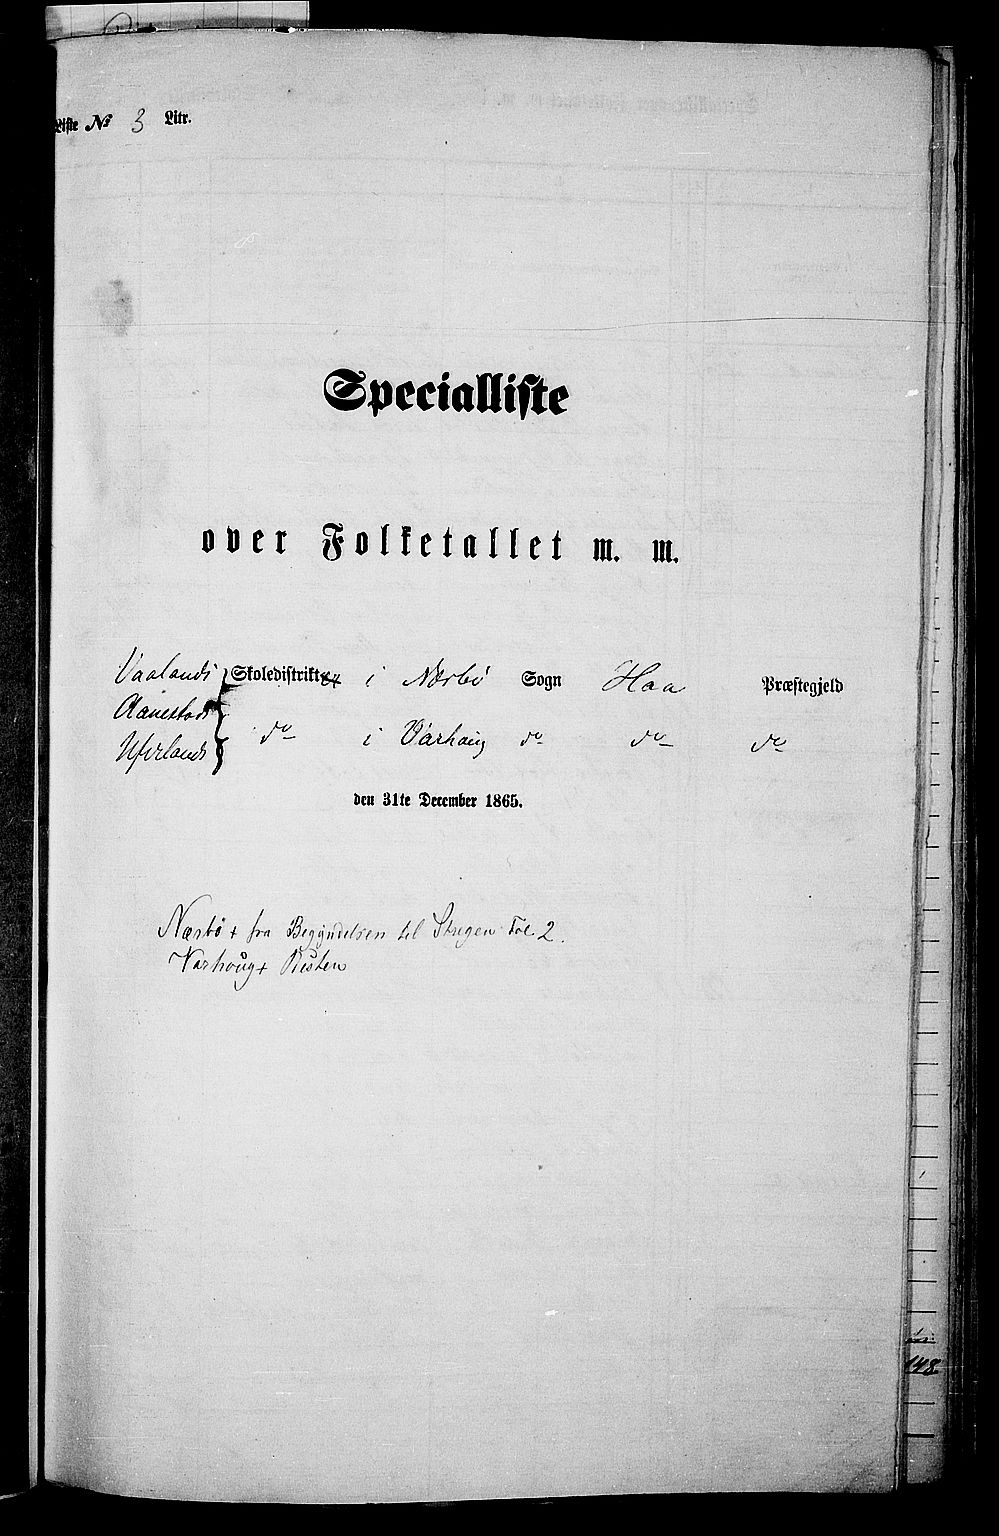 Liste No 3 Litr.
Specialliste
over Folketallet m. m.
Vaalands Skoledistrikter i Nærbø Sogn Haa Præstegjeld
Aanestads
Ufirlands do i Varhaug do do do
den 31te December 1865.
Nærbø + fra Begyndelsen til Stregen Fol 2.
Varhoug + Resten
148